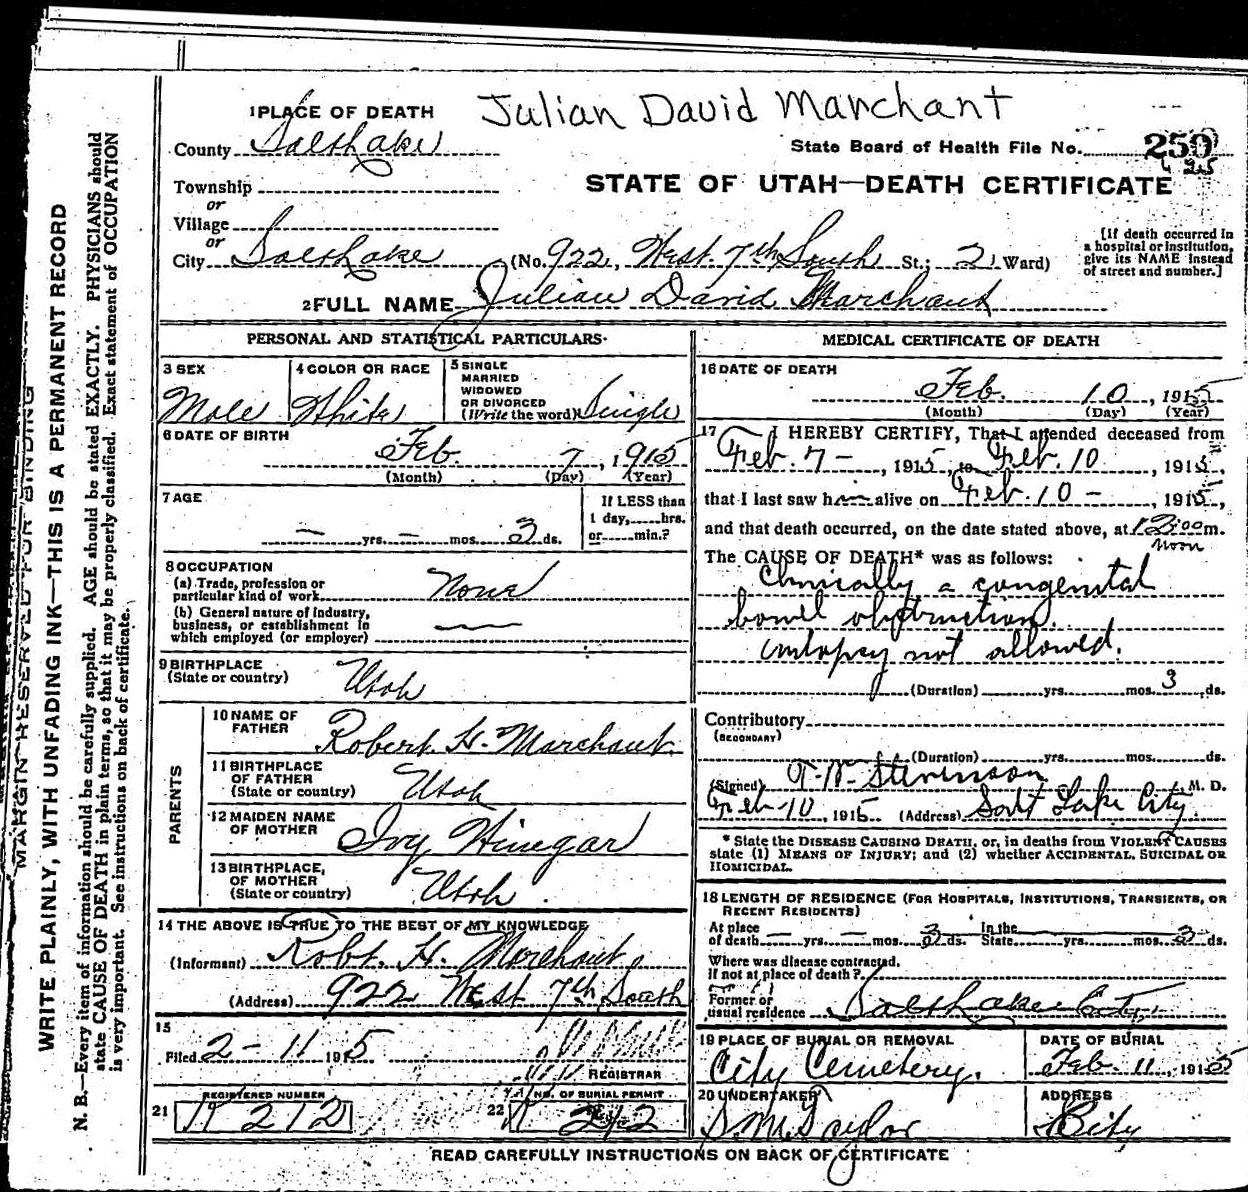 Julian David Marchant
1 PLACE OF DEATH
County Salt Lake
State Board of Health File No. 250
STATE OF UTAH—DEATH CERTIFICATE
Township
or
Village
or
City Salt Lake (No. 922, West 7th South St.; 2 Ward)
[If death occurred in
a hospital or institution,
give its NAME instead
of street and number.]
2 FULL NAME Julian David Marchant
PERSONAL AND STATISTICAL PARTICULARS
3 SEX
Male
4 COLOR OR RACE
White
5 SINGLE
MARRIED
WIDOWED
OR DIVORCED
(Write the word) Single
6 DATE OF BIRTH
Feb. 7, 1915
(Month) (Day) (Year)
7 AGE
— yrs. — mos. 3 ds.
If LESS than
1 day, hrs.
or min.?
8 OCCUPATION
(a) Trade, profession or
particular kind of work None
(b) General nature of industry,
business, or establishment in
which employed (or employer)
9 BIRTHPLACE
(State or country) Utah
PARENTS
10 NAME OF
FATHER Robert H. Marchant
11 BIRTHPLACE
OF FATHER
(State or country) Utah
12 MAIDEN NAME
OF MOTHER Ivy Winegar
13 BIRTHPLACE,
OF MOTHER
(State or country) Utah
14 THE ABOVE IS TRUE TO THE BEST OF MY KNOWLEDGE
(Informant) Robt. H. Marchant
(Address) 922 West 7th South
15
Filed 2-11 1915
REGISTRAR
REGISTERED NUMBER
21 212
NO. OF BURIAL PERMIT
22 212
MEDICAL CERTIFICATE OF DEATH
16 DATE OF DEATH
Feb. 10, 1915
(Month) (Day) (Year)
17 I HEREBY CERTIFY, That I attended deceased from
Feb. 7 -, 1915, to Feb. 10, 1915,
that I last saw h alive on Feb. 10 -, 1915,
and that death occurred, on the date stated above, at 12:00 m.
Noon
The CAUSE OF DEATH* was as follows:
Clinically a congenital
bowel obstruction.
autopsy not allowed.
(Duration) yrs. mos. 3 ds.
Contributory
(SECONDARY)
(Duration) yrs. mos. ds.
(Signed) Stevenson M. D.
Feb 10, 1915 (Address) Salt Lake City
* State the DISEASE CAUSING DEATH, or, in deaths from VIOLENT CAUSES
state (1) MEANS OF INJURY; and (2) whether ACCIDENTAL, SUICIDAL OR
HOMICIDAL.
18 LENGTH OF RESIDENCE (FOR HOSPITALS, INSTITUTIONS, TRANSIENTS, OR
RECENT RESIDENTS)
At place
of death — yrs. — mos. 3 ds. In the
State yrs. mos. 3 ds.
Where was disease contracted,
if not at place of death?
Former or
usual residence Salt Lake City
19 PLACE OF BURIAL OR REMOVAL
City Cemetery.
DATE OF BURIAL
Feb. 11, 1915
20 UNDERTAKER
S. M. Taylor
ADDRESS
City
READ CAREFULLY INSTRUCTIONS ON BACK OF CERTIFICATE
MARGIN RESERVED FOR BINDING
WRITE PLAINLY, WITH UNFADING INK—THIS IS A PERMANENT RECORD
N. B.—Every item of information should be carefully supplied. AGE should be stated EXACTLY. PHYSICIANS should
state CAUSE OF DEATH in plain terms, so that it may be properly classified. Exact statement of OCCUPATION
is very important. See instructions on back of certificate.